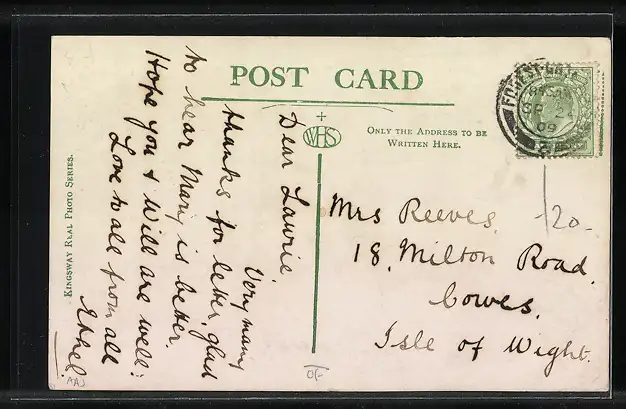 POST CARD
WHS
ONLY THE ADDRESS TO BE
WRITTEN HERE.
KINGSWAY REAL PHOTO SERIES.
FOREST GATE
SP 21
09
Dear Laurie
Very many
thanks for letter, glad
to hear Mary is better.
Hope you & Will are well:
Love to all from all
Ethel.
Mrs Reeves.
18, Milton Road,
Cowes.
Isle of Wight.
-20-